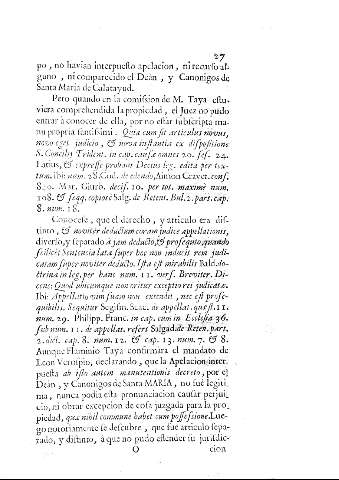 27
po, no havian interpuesto apelacion, ni recurso al-
guno, ni comparecido el Deàn, y Canonigos de
Santa Maria de Calatayud.
Pero quando en la comission de M. Taya estu-
viera comprehendida la propiedad, el Juez no pudo
entrar à conocer de ella, por no estàr subscripta ma-
nu propria santissimi. Quia cum sit articulus novus,
novum judicio, & nova instantia ex dispositione
S. Concilij Trident. in cap. causæ omnes 20. ses. 24.
Latius, & expresse probant Decius leg. edita per tex-
tum. ibi: num. 28. Cod. de edendo, Anton. Cravet. cons.
820. Mar. Giurb. decis. 10. per tot. maximè num.
108. & seqq. copiosè Salg. de Retent. Bul. 2. part. cap.
8. num. 18.
Conocese, que el derecho, y articulo era dis-
tinto, & noviter deductum coram judice appellationis,
diverso, y separado à jam deducto, & prosequto, quando
scilicet Sententia lata super hoc non inducit rem judi-
catam super noviter deducto. Ista est mirabilis Bald. do-
ctrina in leg. per hanc num. 11. vers. Breviter. Di-
cens: Quod ubicumque non oritur exceptio rei judicatæ.
Ibi Appellatio viam suam non extendit, nec est prose-
quibilis. Sequitur Segism. Scac. de appellat. quæst. 11.
num. 29. Philipp. Franc. in cap. cum in Ecclesia 36.
sub num. 11. de appellat. refert Salgad. de Reten. part.
2. dict. cap. 8. num. 12. & cap. 13. num. 7. & 8.
Aunque Flaminio Taya confirmara el mandato de
Leon Verospio, declarando, que la Apelacion inter-
puesta ab isto autem manutentionis decreto, por el
Deàn, y Canonigos de Santa MARIA, no fuè legiti-
ma, nunca podia esta pronunciacion causar perjui-
cio, ni obrar excepcion de cosa juzgada para la pro-
piedad, quæ nihil commune habet cum possessione. Lue-
go notoriamente se descubre, que fuè articulo sepa-
rado, y distinto, à que no pudo estender su jurisdic-
O cion